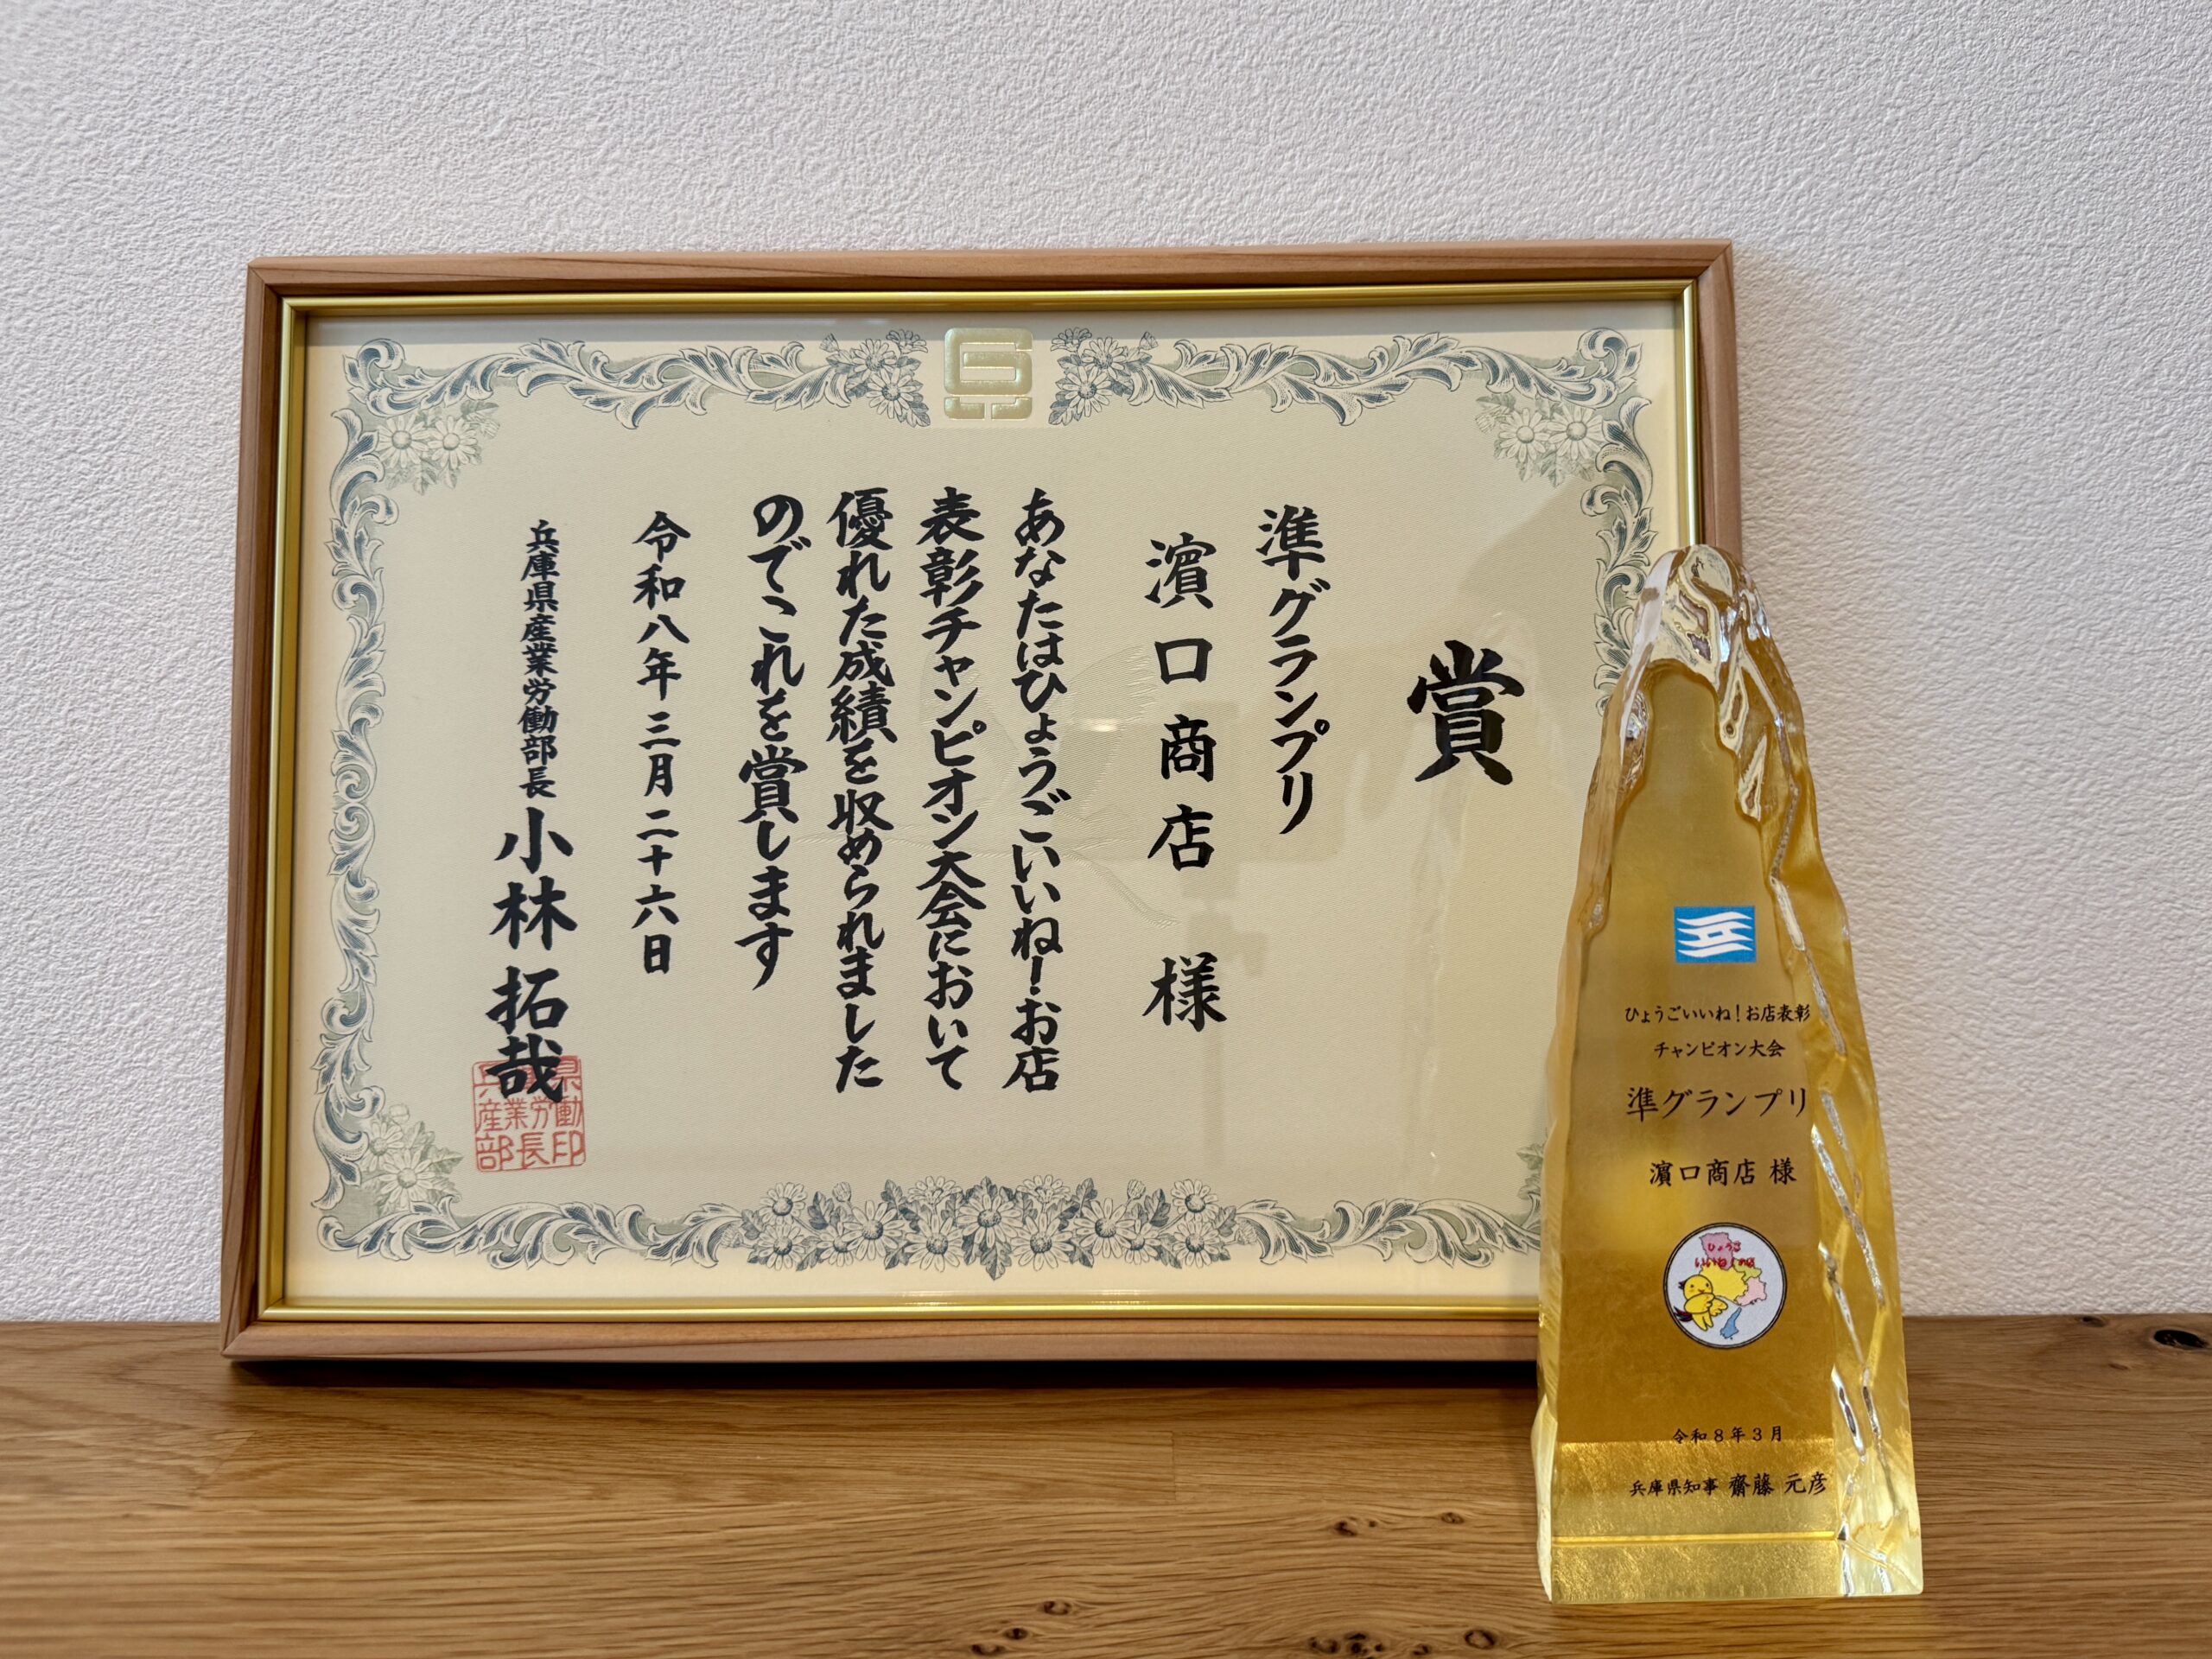 賞
準グランプリ
濵口商店 様
あなたはひょうごいいね!お店
表彰チャンピオン大会において
優れた成績を収められました
のでこれを賞します
令和八年三月二十六日
兵庫県産業労働部長 小林拓哉
兵庫県
産業労働
部長印
ひょうごいいね!お店表彰
チャンピオン大会
準グランプリ
濵口商店 様
ひょうご
令和8年3月
兵庫県知事 齋藤 元彦